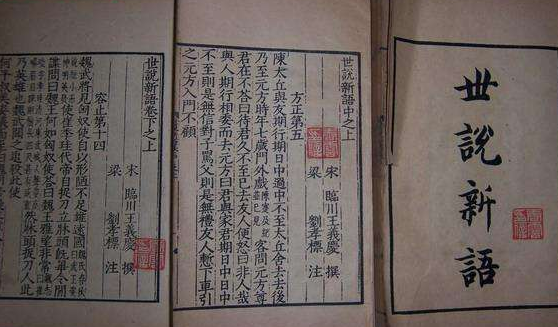 世說新語
世說新語中之上
宋 臨川王義慶 撰
梁 劉孝標 注
方正第五
陳太丘與友期行期日中過中不至太丘舍去去後
乃至元方時年七歲門外戲陳寔及紀並已見客問元方尊
君在不答曰待君久不至已去友人便怒曰非人哉
與人期行相委而去元方曰君與家君期日中日中
不至則是無信對子罵父則是無禮友人慙下車引
之元方入門不顧
世說新語卷下之上
宋 臨川王義慶 撰
梁 劉孝標 注
容止第十四
魏武將見匈奴使自以形陋不足雄遠國魏氏春秋曰武王姿
貌短小而神明英發使崔季珪代帝自捉刀立牀頭既畢令間
諜問曰魏王何如匈奴使答曰魏王雅望非常
然牀頭捉刀人此
乃英雄也魏武聞之追殺此使